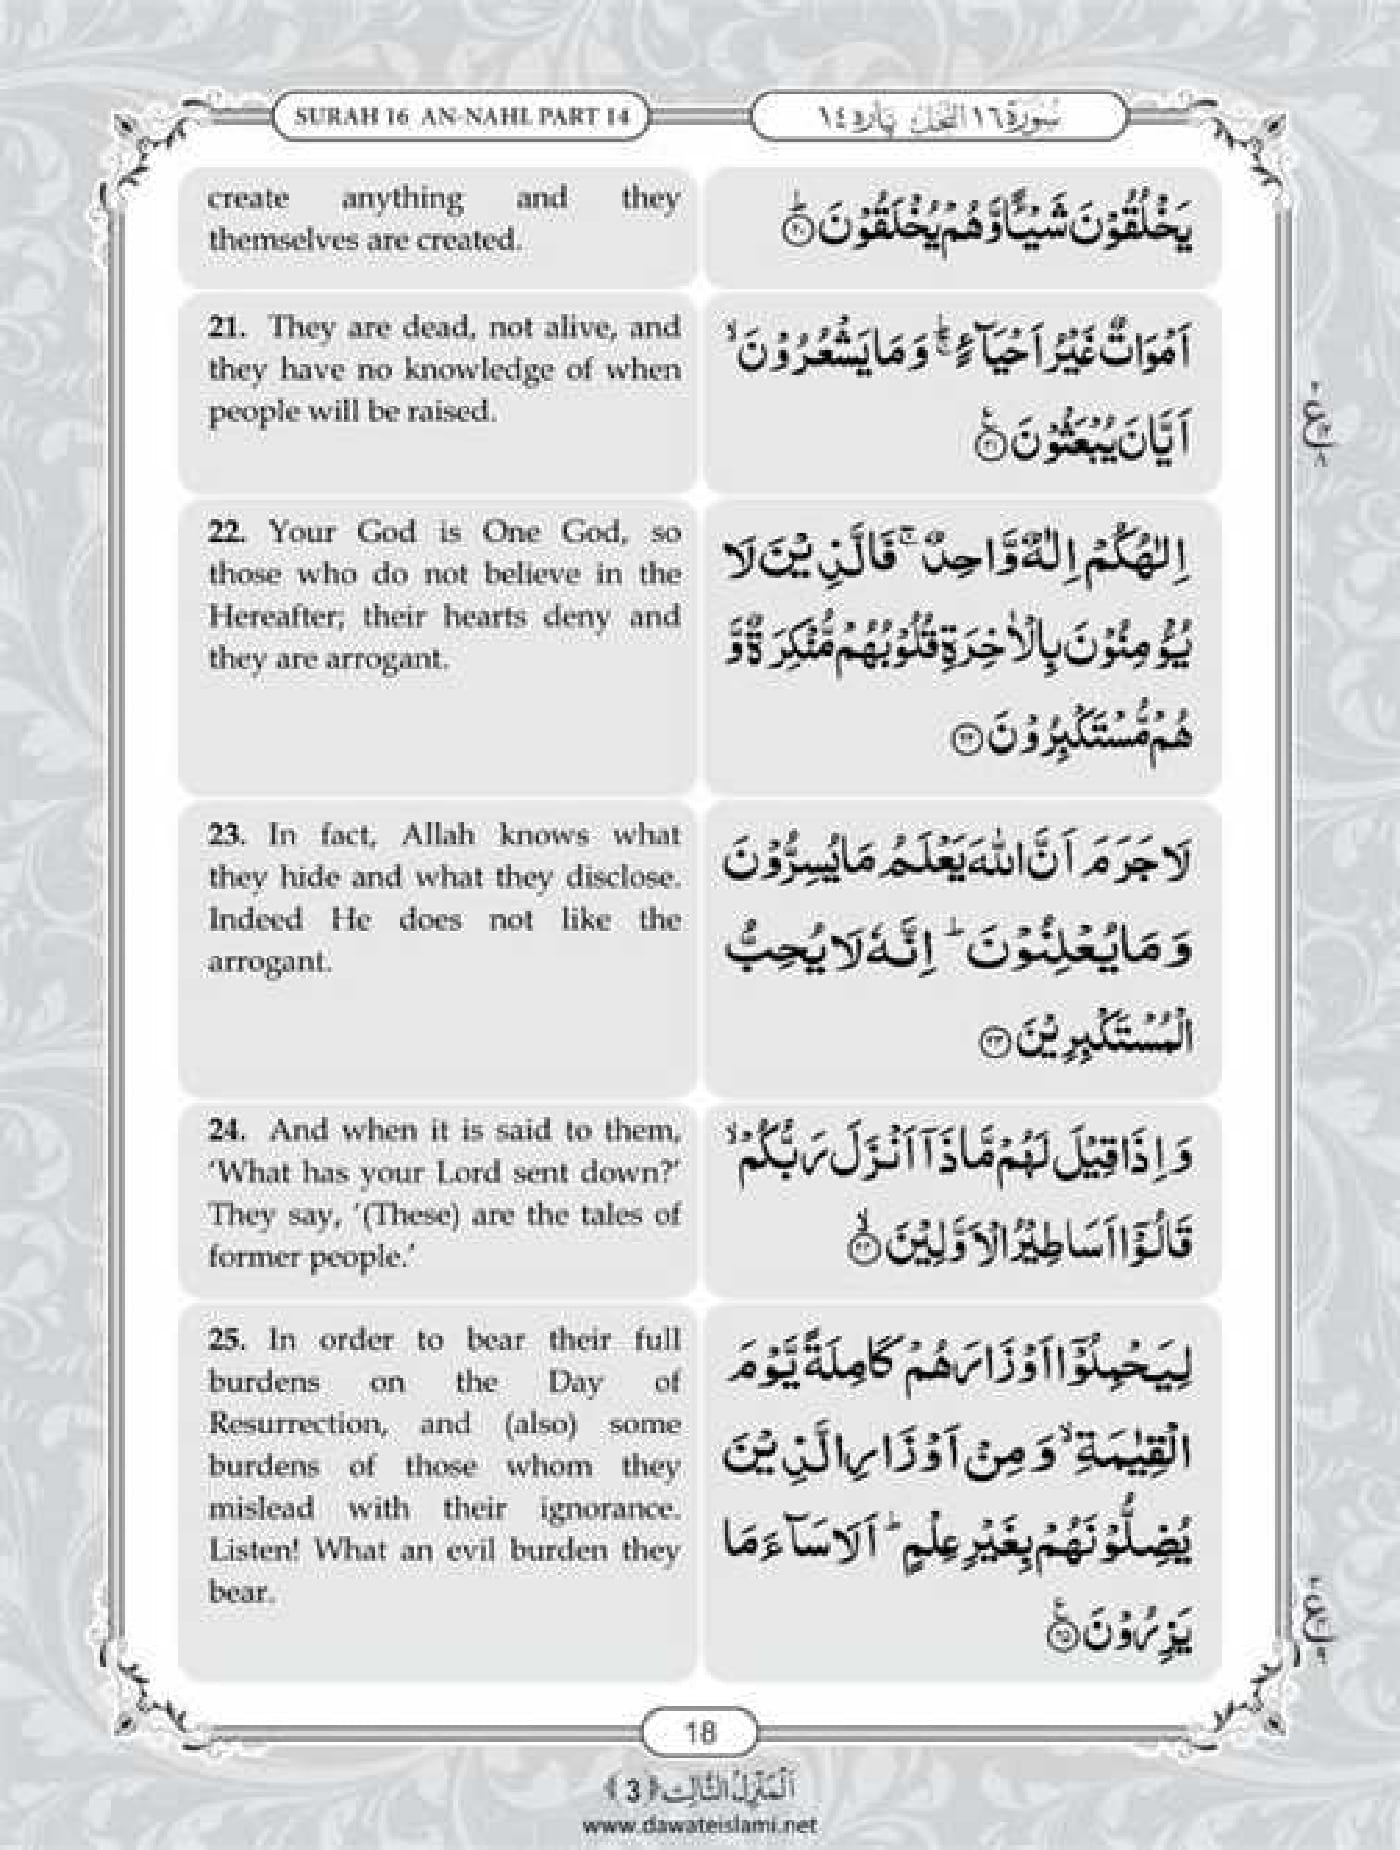 SURAH 16 AN-NAHL PART 14
سُوْرَة ١٦ النَّحْل پَارہ ١٤
create anything and they
themselves are created.
يَخْلُقُوْنَ شَيْـًٔا وَّهُمْ يُخْلَقُوْنَ ؕ﴿۲۰﴾
21. They are dead, not alive, and
they have no knowledge of when
people will be raised.
اَمْوَاتٌ غَيْرُ اَحْيَآءٍ ۚ وَ مَا يَشْعُرُوْنَ ۙ
اَيَّانَ يُبْعَثُوْنَ ﴿۲۱﴾
22. Your God is One God, so
those who do not believe in the
Hereafter; their hearts deny and
they are arrogant.
اِلٰهُكُمْ اِلٰهٌ وَّاحِدٌ ۚ فَالَّذِيْنَ لَا
يُؤْمِنُوْنَ بِالْاٰخِرَةِ قُلُوْبُهُمْ مُّنْكِرَةٌ وَّ
هُمْ مُّسْتَكْبِرُوْنَ ﴿۲۲﴾
23. In fact, Allah knows what
they hide and what they disclose.
Indeed He does not like the
arrogant.
لَا جَرَمَ اَنَّ اللهَ يَعْلَمُ مَا يُسِرُّوْنَ
وَ مَا يُعْلِنُوْنَ ؕ اِنَّهٗ لَا يُحِبُّ
الْمُسْتَكْبِرِيْنَ ﴿۲۳﴾
24. And when it is said to them,
‘What has your Lord sent down?’
They say, ‘(These) are the tales of
former people.’
وَ اِذَا قِيْلَ لَهُمْ مَّا ذَاۤ اَنْزَلَ رَبُّكُمْ ۙ
قَالُوْۤا اَسَاطِيْرُ الْاَوَّلِيْنَ ۙ﴿۲۴﴾
25. In order to bear their full
burdens on the Day of
Resurrection, and (also) some
burdens of those whom they
mislead with their ignorance.
Listen! What an evil burden they
bear.
لِيَحْمِلُوْۤا اَوْزَارَهُمْ كَامِلَةً يَّوْمَ
الْقِيٰمَةِ ۙ وَ مِنْ اَوْزَارِ الَّذِيْنَ
يُضِلُّوْنَهُمْ بِغَيْرِ عِلْمٍ ؕ اَلَا سَآءَ مَا
يَزِرُوْنَ ﴿۲۵﴾
18
اَلْمَنْزِلُ الثَّالِث ﴿3﴾
www.dawateislami.net